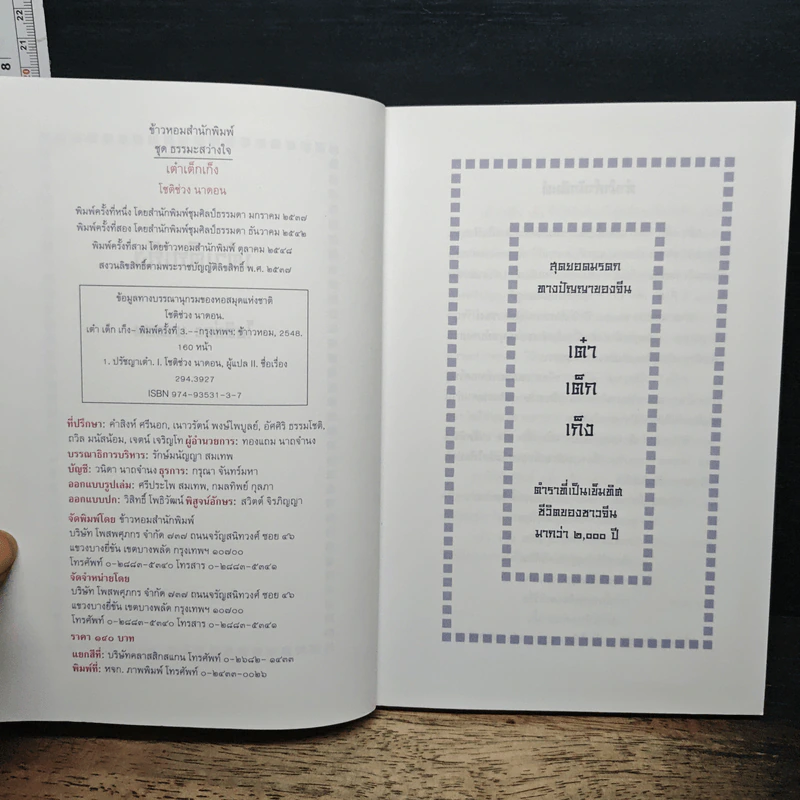 22
21
20
8
ข้าวหอมสำนักพิมพ์
ชุด ธรรมะสว่างใจ
เต๋าเต็กเก็ง
โชติช่วง นาดอน
พิมพ์ครั้งที่หนึ่ง โดยสำนักพิมพ์ชุมศิลป์ธรรมดา มกราคม ๒๕๓๗
พิมพ์ครั้งที่สอง โดยสำนักพิมพ์ชุมศิลป์ธรรมดา ธันวาคม ๒๕๔๒
พิมพ์ครั้งที่สาม โดยข้าวหอมสำนักพิมพ์ ตุลาคม ๒๕๔๘
สงวนลิขสิทธิ์ตามพระราชบัญญัติลิขสิทธิ์ พ.ศ. ๒๕๓๗
ข้อมูลทางบรรณานุกรมของหอสมุดแห่งชาติ
โชติช่วง นาดอน.
เต๋า เต็ก เก็ง-- พิมพ์ครั้งที่ 3.--กรุงเทพฯ: ข้าวหอม, 2548.
160 หน้า
1. ปรัชญาเต๋า. I. โชติช่วง นาดอน, ผู้แปล II. ชื่อเรื่อง
294.3927
ISBN 974-93531-3-7
ที่ปรึกษา: คำสิงห์ ศรีนอก, เนาวรัตน์ พงษ์ไพบูลย์, อัศศิริ ธรรมโชติ,
ถวิล มนัสน้อม, เจตน์ เจริญโท ผู้อำนวยการ: ทองแถม นาถจำนง
บรรณาธิการบริหาร: รักษ์มนัญญา สมเทพ
บัญชี: วนิดา นาถจำนง ธุรการ: กรุณา จันทร์มหา
ออกแบบรูปเล่ม: ศรีประไพ สมเทพ, กมลทิพย์ กุลภา
ออกแบบปก: วิสิทธิ์ โพธิวัฒน์ พิสูจน์อักษร: สวิตต์ จิรภิญญา
จัดพิมพ์โดย ข้าวหอมสำนักพิมพ์
บริษัท โพสพศุภกร จำกัด ๗๓๗ ถนนจรัญสนิทวงศ์ ซอย ๔๖
แขวงบางยี่ขัน เขตบางพลัด กรุงเทพฯ ๑๐๗๐๐
โทรศัพท์ ๐-๒๘๘๓-๕๓๔๐ โทรสาร ๐-๒๘๘๓-๕๓๔๑
จัดจำหน่ายโดย
บริษัท โพสพศุภกร จำกัด ๗๓๗ ถนนจรัญสนิทวงศ์ ซอย ๔๖
แขวงบางยี่ขัน เขตบางพลัด กรุงเทพฯ ๑๐๗๐๐
โทรศัพท์ ๐-๒๘๘๓-๕๓๔๐ โทรสาร ๐-๒๘๘๓-๕๓๔๑
ราคา ๑๔๐ บาท
แยกสีที่: บริษัทคลาสสิกสแกน โทรศัพท์ ๐-๒๖๘๒- ๑๔๓๓
พิมพ์ที่: หจก. ภาพพิมพ์ โทรศัพท์ ๐-๒๔๓๓-๐๐๒๖
สุดยอดมรดก
ทางปัญญาของจีน
เต๋า
เต็ก
เก็ง
ตำราที่เป็นเข็มทิศ
ชีวิตของชาวจีน
มากว่า ๒,๐๐๐ ปี